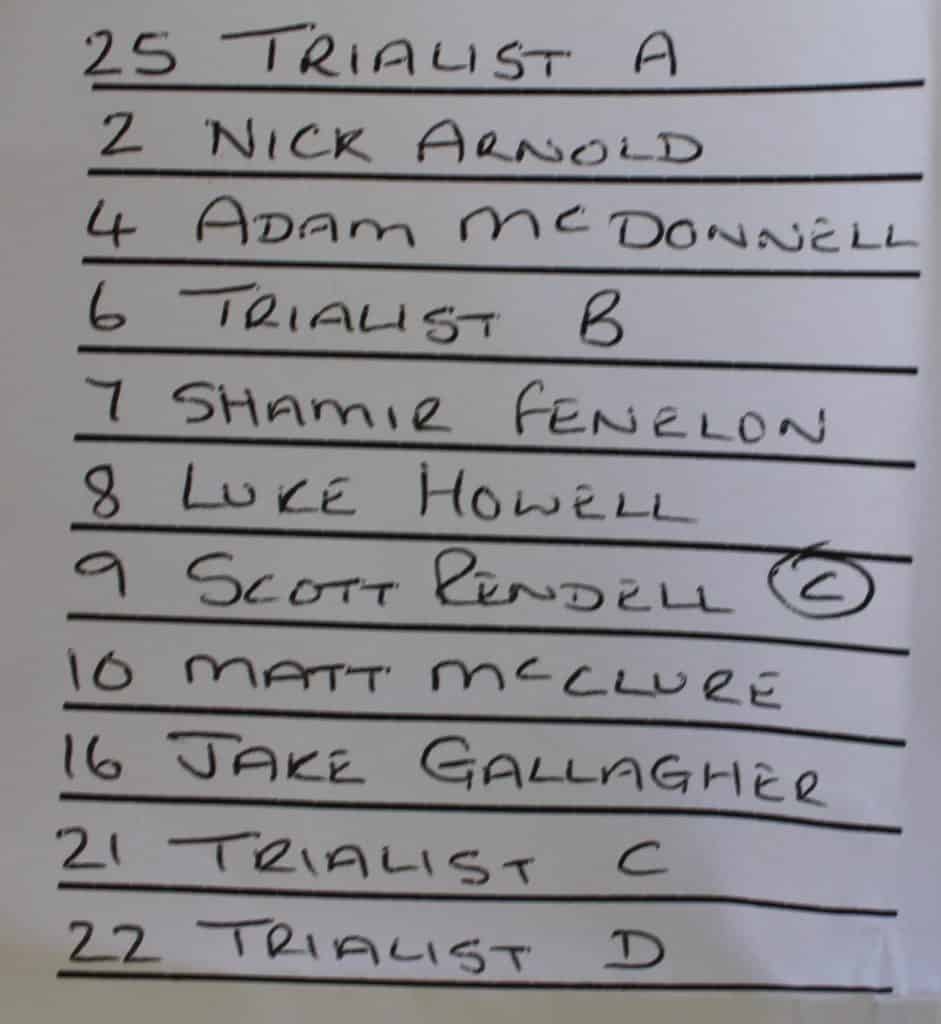 25 TRIALIST A
2 NICK ARNOLD
4 ADAM McDONNELL
6 TRIALIST B
7 SHAMIR FENELON
8 LUKE HOWELL
9 SCOTT RENDELL C
10 MATT McCLURE
16 JAKE GALLAGHER
21 TRIALIST C
22 TRIALIST D